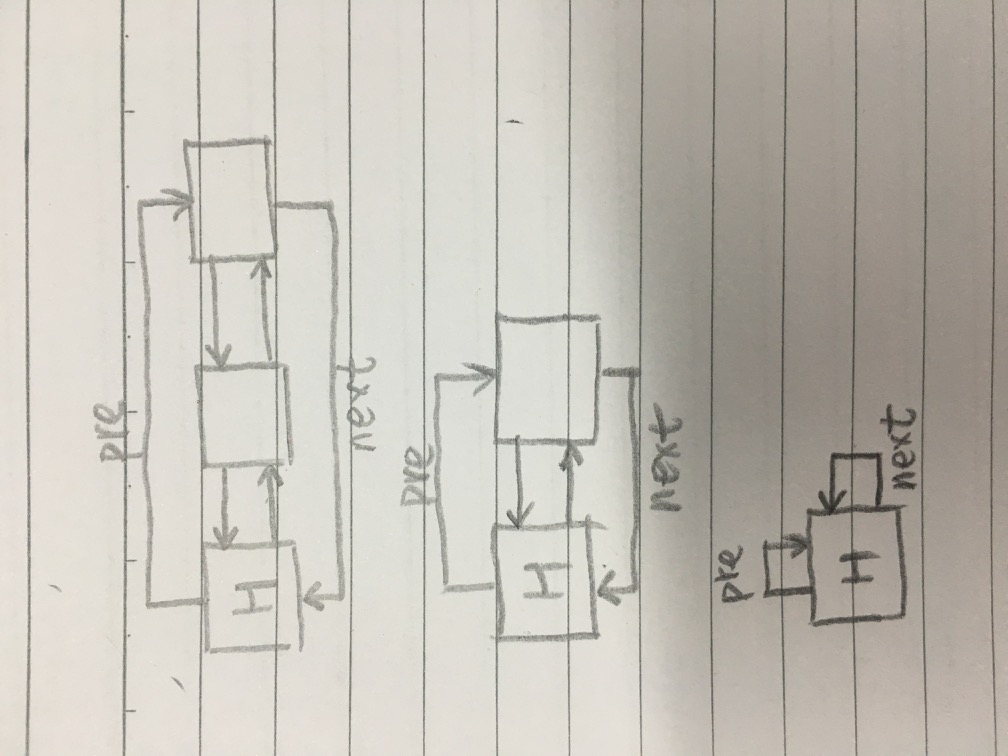 pre
H
next
pre
H
next
pre
H
next